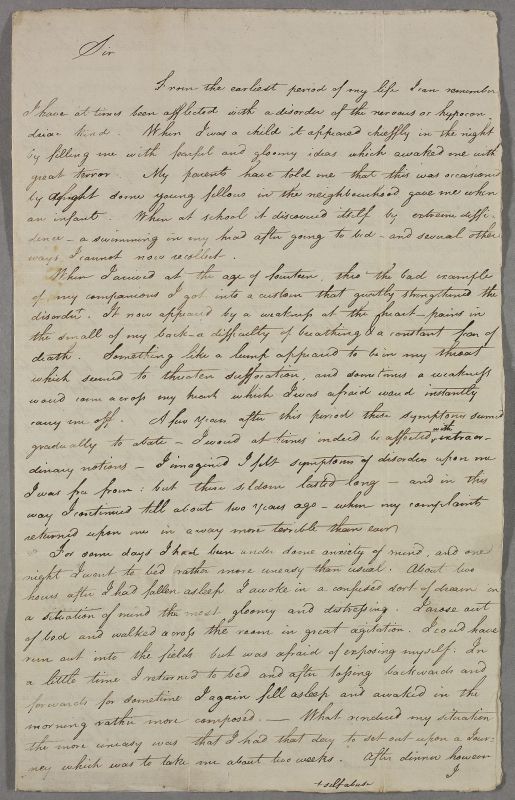 Sir
From the earliest period of my life I can remember
I have at times been afflicted with a disorder of the nervous or hypocon,
driac kind. When I was a child it appeared chieffly in the night
by filling me with fearful and gloomy ideas which awaked me with
great terror. My parents have told me that this was occasioned
by a fright some young fellows in the neighbourhood gave me when
an infant. When at school it discovered itself by extreme diffi-
dence - a swimming in my head after going to bed - and several other
ways I cannot now recollect.
When I arrived at the age of fourteen, thro' the bad example
of my companions I got into a custom that greatly strengthened the
disorder. It now appeared by a weakness at the heart - pains in
the small of my back - a difficulty of breathing & a constant fear of
death. Something like a lump appeared to be in my throat
which seemed to threaten suffocation, and sometimes a weakness
would come across my heart which I was afraid woud instantly
carry me off. A few years after this period these symptoms seemed
gradually to abate - I woud at times indeed be affected with extraor-
dinary notions - I imagined I felt symptoms of disorders upon me
I was far from: but these seldom lasted long - and in this
way I continued till about two years ago - when my complaints
returned upon me in a way more terrible than ever
For some days I had been under some anxiety of mind, and one
night I went to bed rather more uneasy than usual. About two
hours after I had fallen asleep I awoke in a confused sort of dream in
a situation of mind the most gloomy and distressing. I arose out
of bed and walked across the room in great agitation. I could have
run out into the fields but was afraid of exposing myself. In
a little time I returned to bed and after tossing backwards and
forwards for sometime I again fell asleep and awaked in the
morning rather more composed. — What rendered my situation
the more uneasy was that I had that day to set out upon a Jour-
ney which was to take me about two weeks. After dinner however
I
+ self abuse